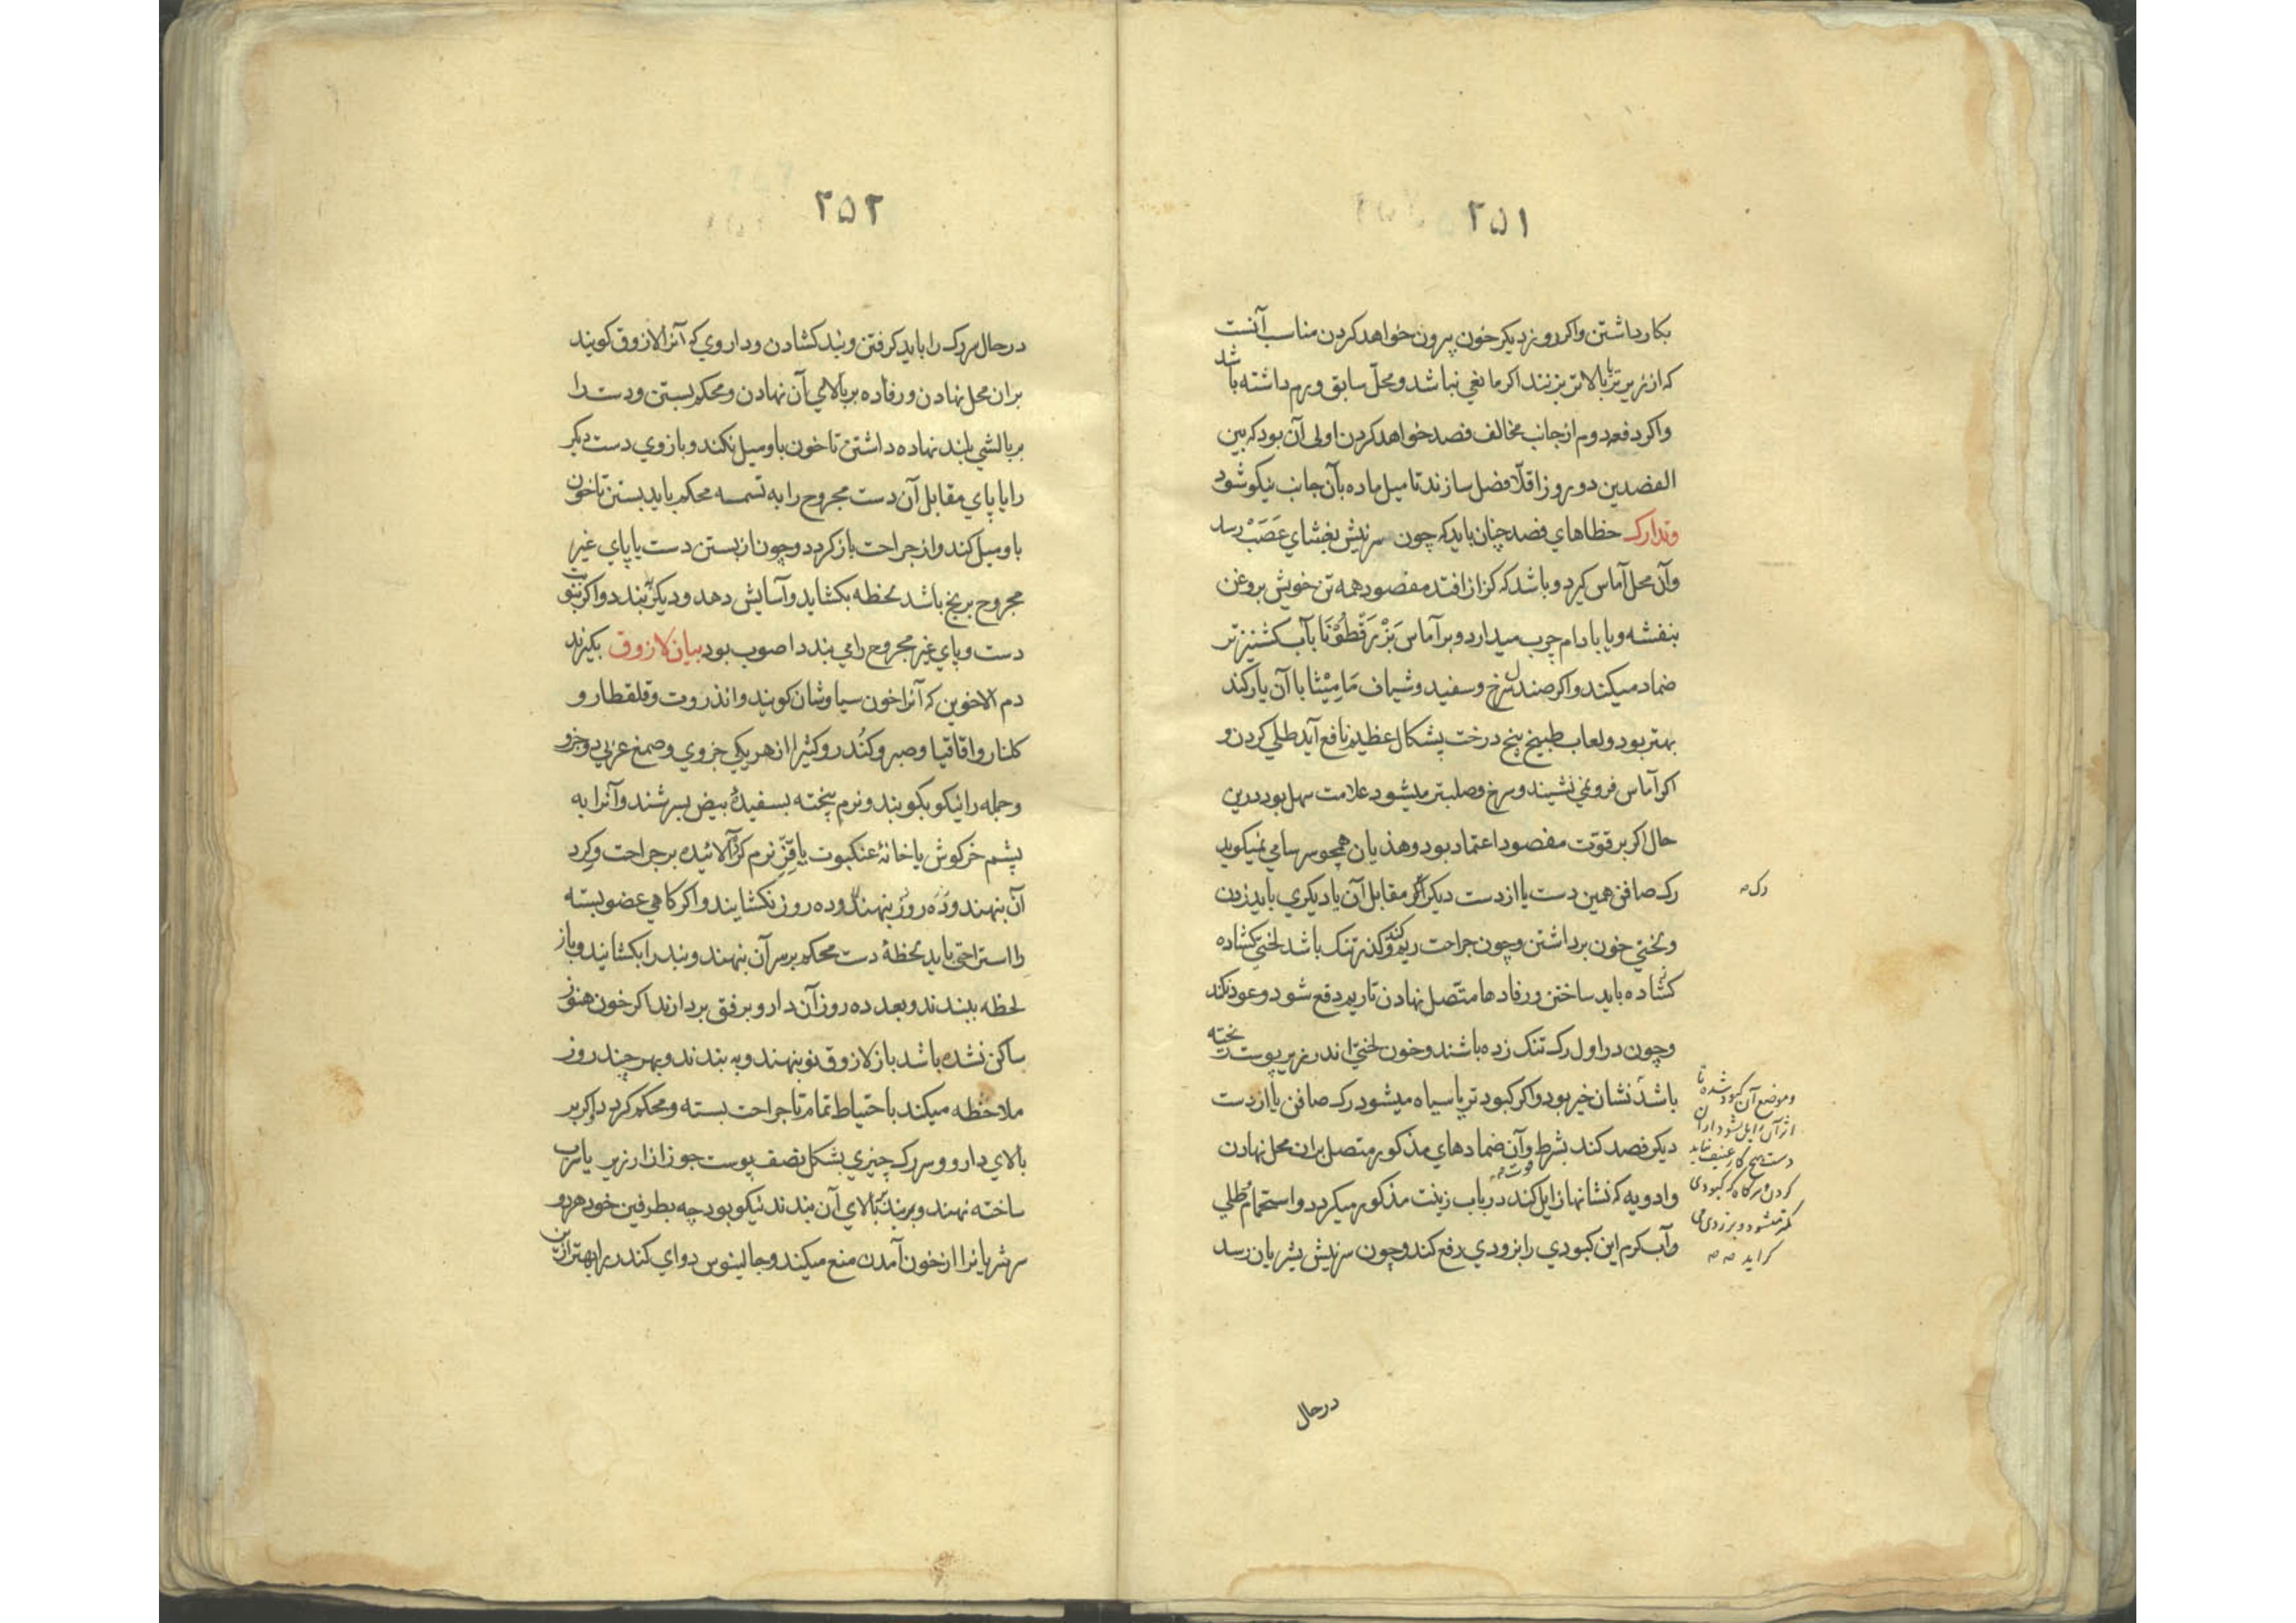 ۲۵۱
بکار داشتن واکر روز دیکر خون بیرون خواهد کردن مناسب آنست
که از زیر تر یا بالاتر بزنند اکر مانعی نباشد و محلّ سابق ورم داشته باشد
واکر دفعه دوم از جانب مخالف فصد خواهد کردن اولی آن بود که بین
الفصدین دو روز اقلّا فصل سازند تا میل ماده بآن جانب نیکو شود
وتدارک خطاهای فصد چنان باید که چون سر نیش بغشای عَصَبْ رسد
وآن محل آماس کیرد و باشد که کزاز افتد مفصود همه تن خویش بروغن
بنفشه و یا بادام چرب میدارد و بر آماس بَزْرقَطُوْنَا بآب کشنیز تر
ضماد میکند واکر صندل سرخ و سفید و شیاف مَامِیْثا با آن یار کند
بهتر بود و لعاب طبیخ بیخ درخت پشکال عظیم نافع آید طلی کردن و
اکر آماس فرو نمی نشیند و سرخ و صلبتر میشود علامت سهل بود درین
حال اکر بر قوّت مفصود اعتماد بود و هذیان همچو سرسامی نمیکوید
رک صافن همین دست یا از دست دیکر اکر مقابل آن یا دیکری باید زدن
رک صه
و لختی خون برداشتن و چون جراحت ریم کند و کذر تنک باشد لختی کشاده
کشاده باید ساختن و رفادها متّصل نهادن تا ریم دفع شود و عود نکند
و چون در اول رک تنک زده باشند و خون لختی اندر زیر پوست پخته
باشد نشان خیر بود واکر کبود تر یا سیاه میشود رک صافن یا از دست
دیکر فصد کند بشرط قوت وآن ضمادهای مذکور متصل بران محل نهادن
وادویه که نشانها زایل کند در باب زینت مذکور میکردد واستحمام طلی
وآب کرم این کبودی را بزودی رفع کند و چون سر نیش بشریان رسد
وموضع آن کبود شده تا
اثر آن زایل نشود ازان
دست هیچ کار عنیف نباید
کردن وهرکاه که کبودی
کمتر میشود و بزردی می
کراید صه صه
در حال
۲۵۲
در حال سر رک را باید کرفتن و بند کشادن و داروی که آنرا لازوق کویند
بران محل نهادن و رفاده بر بالای آن نهادن و محکم بستن و دست را
بر بالشی بلند نهاده داشتن تا خون باو میل نکند و بازوی دست دیکر
را یا پای مقابل آن دست مجروح را به تسمه محکم باید بستن تا خون
باو میل کند واز جراحت باز کردد و چون از بستن دست یا پای غیر
مجروح برنج باشد لحظه بکشاید وآسایش دهد و دیکر ببندد واکر بنوبت
دست و پای غیر مجروح را می بندد اصوب بود بیان لازوق بکیرند
دم الاخوین که آنرا خون سیاوشان کویند وانذروت و قلقطار و
کلنار واقاقیا و صبر و کُندر و کتیرا از هر یکی جزوی و صمغ عربی دو جزو
و جمله را نیکو بکوبند و نرم پخته بسفیدۀ بیض بسرشند وآنرا به
پشم خرکوش یا خانۀ عنکبوت یا قَزِّ نرم کرده آلائیده بر جراحت و کرد
آن بنهند و ده روز بنهند و ده روز نکشایند واکر کاهی عضو بسته
را استراحتی باید لحظۀ دست محکم بر سر آن بنهند و بند را بکشانید و باز
لحظه ببندند و بعد ده روز آن دارو برفق بردارند اکر خون هنوز
ساکن نشده باشد باز لازوق نو بنهند و به بندند و بهر چند روز
ملاحظه میکند باحتیاط تمام تا جراحت بسته و محکم کردد واکر بر
بالای دارو و سر رک چیزی بشکل نصف پوست جوز از ارزیز یا سرب
ساخته نهند و بر بند ببالای آن بندند نیکو بود چه بطرفین خود هر دو
سر شریانرا از خون آمدن منع میکند و جالینوس دوای کندر را بهتر ازین